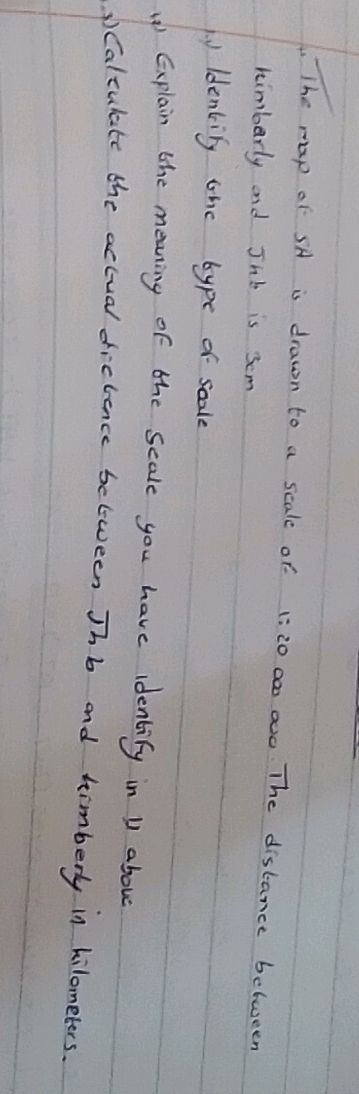 The map of SA is drawn to a scale of 1:20 000 000. The distance between
kimberly and Jhb is 3cm
1) Identify the type of scale
2) Explain the meaning of the scale you have identify in 1) above
3) Calculate the actual distance between Jhb and kimberly in kilometers.